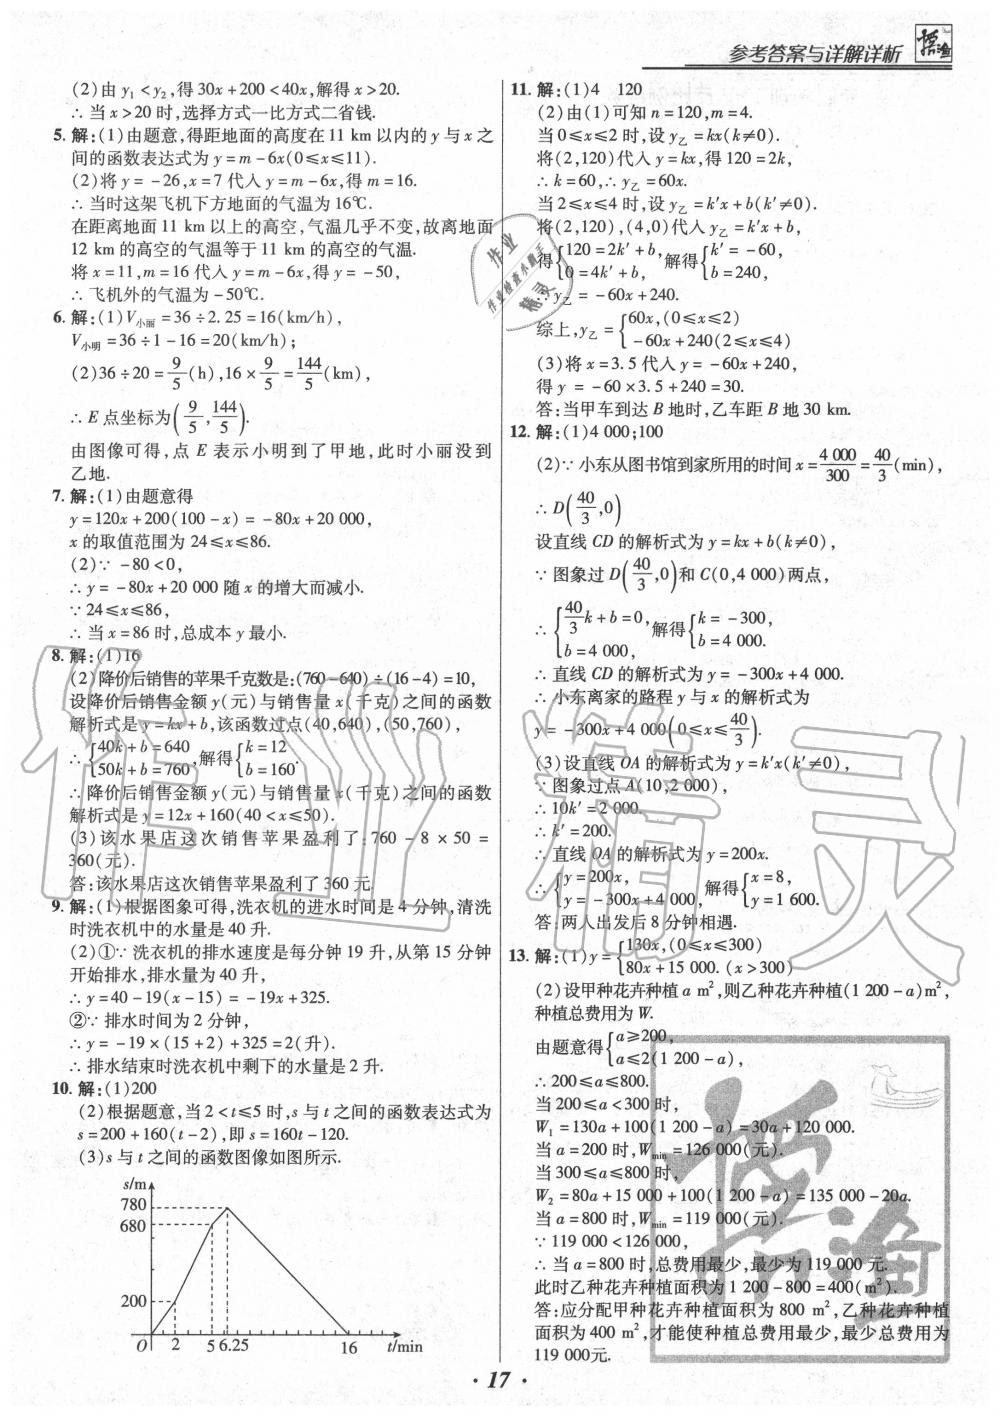 参考答案与详解详析
(2)由 y₁<y₂,得 30x+200<40x,解得 x>20.
∴当 x>20 时,选择方式一比方式二省钱.
5. 解:(1)由题意,得距地面的高度在 11 km 以内的 y 与 x 之
间的函数表达式为 y=m-6x(0≤x≤11).
(2)将 y=-26,x=7 代入 y=m-6x,得 m=16.
∴当时这架飞机下方地面的气温为 16℃.
在距离地面 11 km 以上的高空,气温几乎不变,故离地面
12 km 的高空的气温等于 11 km 的高空的气温.
将 x=11,m=16 代入 y=m-6x,得 y=-50,
∴飞机外的气温为-50℃.
6. 解:(1)V小丽=36÷2.25=16(km/h),
V小明=36÷1-16=20(km/h);
(2)36÷20=9/5(h),16×9/5=144/5(km),
∴E 点坐标为(9/5,144/5).
由图像可得,点 E 表示小明到了甲地,此时小丽没到
乙地.
7. 解:(1)由题意得
y=120x+200(100-x)=-80x+20 000,
x 的取值范围为 24≤x≤86.
(2)∵-80<0,
∴y=-80x+20 000 随 x 的增大而减小.
∵24≤x≤86,
∴当 x=86 时,总成本 y 最小.
8. 解:(1)16
(2)降价后销售的苹果千克数是:(760-640)÷(16-4)=10,
设降价后销售金额 y(元)与销售量 x(千克)之间的函数
解析式是 y=kx+b,该函数过点(40,640),(50,760),
∴{40k+b=640 50k+b=760,解得{k=12 b=160.
∴降价后销售金额 y(元)与销售量 x(千克)之间的函数
解析式是 y=12x+160(40<x≤50).
(3)该水果店这次销售苹果盈利了:760-8×50=
360(元).
答:该水果店这次销售苹果盈利了 360 元.
9. 解:(1)根据图象可得,洗衣机的进水时间是 4 分钟,清洗
时洗衣机中的水量是 40 升.
(2)①∵洗衣机的排水速度是每分钟 19 升,从第 15 分钟
开始排水,排水量为 40 升,
∴y=40-19(x-15)=-19x+325.
②∵排水时间为 2 分钟,
∴y=-19×(15+2)+325=2(升).
∴排水结束时洗衣机中剩下的水量是 2 升.
10. 解:(1)200
(2)根据题意,当 2<t≤5 时,s 与 t 之间的函数表达式为
s=200+160(t-2),即 s=160t-120.
(3)s 与 t 之间的函数图像如图所示.
s/m
780
680
200
O 2 5 6.25 16 t/min
11. 解:(1)4 120
(2)由(1)可知 n=120,m=4.
当 0≤x≤2 时,设 y乙=kx(k≠0).
将(2,120)代入 y=kx,得 120=2k,
∴k=60,∴y乙=60x.
当 2≤x≤4 时,设 y乙=k′x+b(k′≠0).
将(2,120),(4,0)代入 y乙=k′x+b,
得{120=2k′+b, 0=4k′+b, 解得{k′=-60, b=240,
∴y乙=-60x+240.
综上,y乙={60x,(0≤x≤2) -60x+240(2≤x≤4)
(3)将 x=3.5 代入 y=-60x+240,
得 y=-60×3.5+240=30.
答:当甲车到达 B 地时,乙车距 B 地 30 km.
12. 解:(1)4 000;100
(2)∵小东从图书馆到家所用的时间 x=4 000/300=40/3(min),
∴D(40/3,0)
设直线 CD 的解析式为 y=kx+b(k≠0),
∵图象过 D(40/3,0)和 C(0,4 000)两点,
∴{40/3k+b=0, b=4 000, 解得{k=-300, b=4 000.
∴直线 CD 的解析式为 y=-300x+4 000.
∴小东离家的路程 y 与 x 的解析式为
y=-300x+4 000(0≤x≤40/3).
(3)设直线 OA 的解析式为 y=k′x(k′≠0),
∵图象过点 A(10,2 000),
∴10k′=2 000.
∴k′=200.
∴直线 OA 的解析式为 y=200x.
∴{y=200x, y=-300x+4 000, 解得{x=8, y=1 600.
答:两人出发后 8 分钟相遇.
13. 解:(1)y={130x,(0≤x≤300) 80x+15 000.(x>300)
(2)设甲种花卉种植 a m²,则乙种花卉种植(1 200-a)m²,
种植总费用为 W.
由题意得{a≥200, a≤2(1 200-a),
∴200≤a≤800.
当 200≤a<300 时,
W₁=130a+100(1 200-a)=30a+120 000.
当 a=200 时,Wmin=126 000(元).
当 300≤a≤800 时,
W₂=80a+15 000+100(1 200-a)=135 000-20a.
当 a=800 时,Wmin=119 000(元).
∵119 000<126 000,
∴当 a=800 时,总费用最少,最少为 119 000 元.
此时乙种花卉种植面积为 1 200-800=400(m²).
答:应分配甲种花卉种植面积为 800 m²,乙种花卉种植
面积为 400 m²,才能使种植总费用最少,最少总费用为
119 000元.
· 17 ·
作业精灵